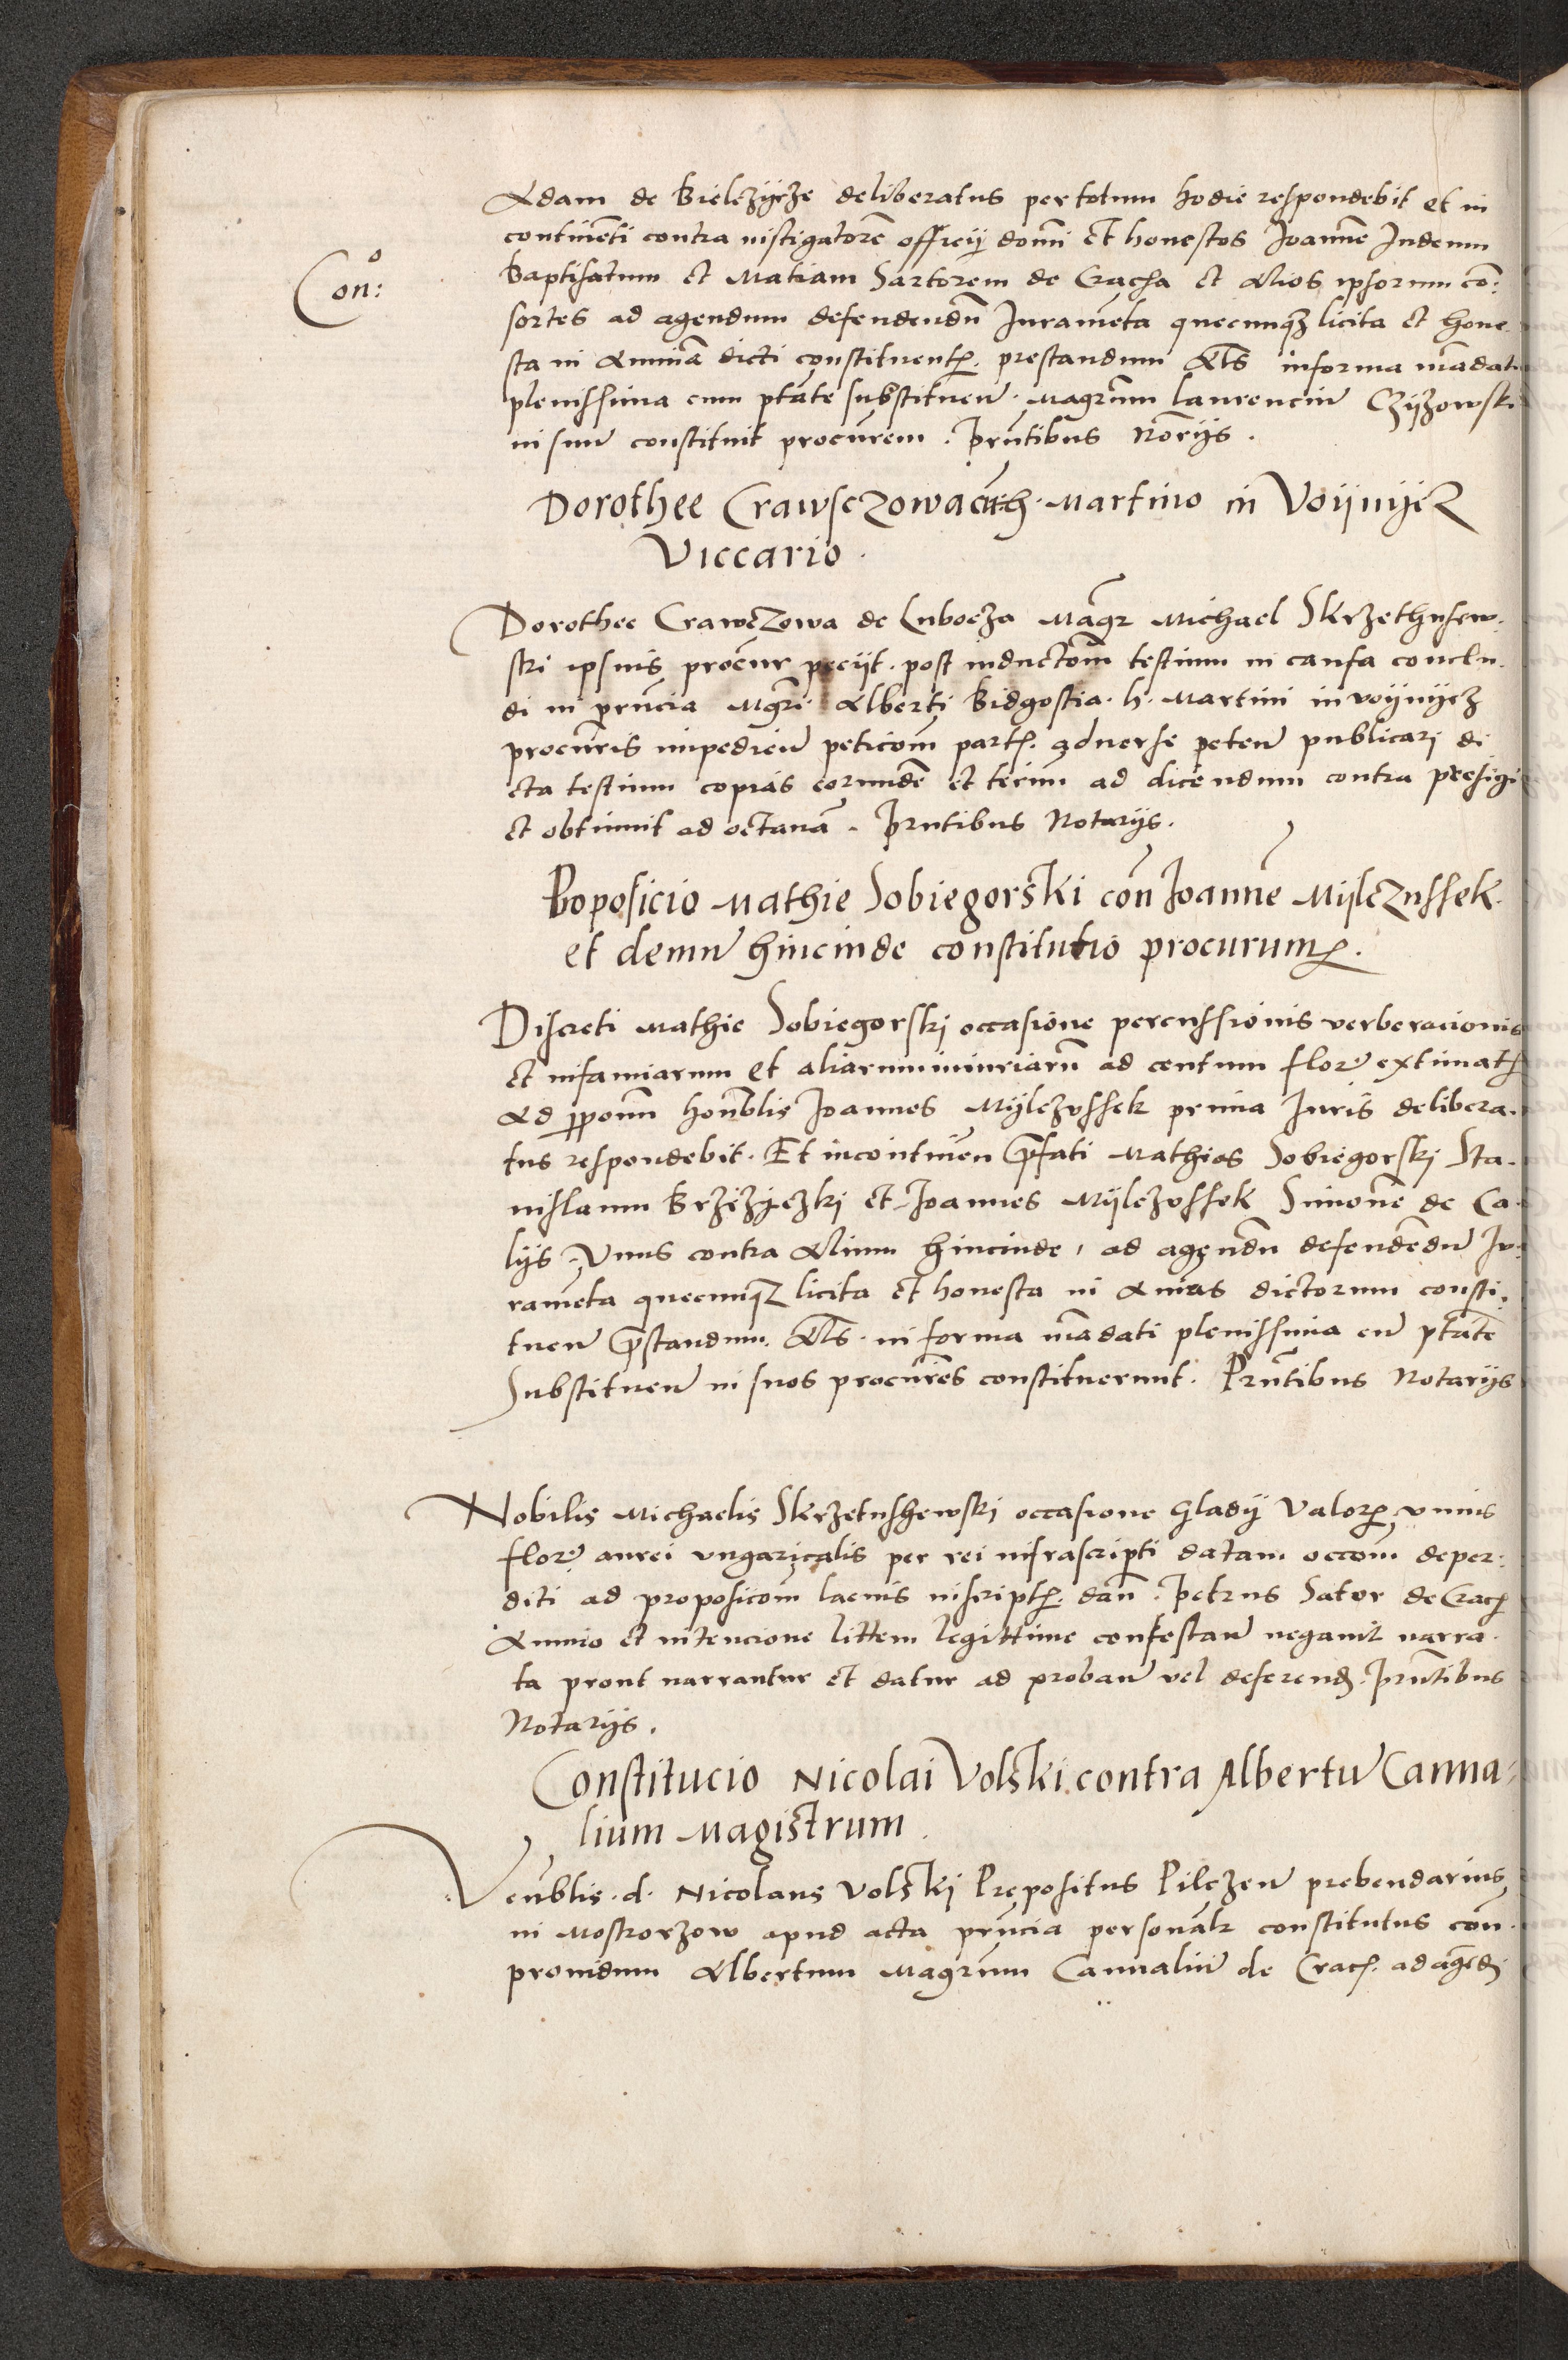 Adam de Bielczycze deliberatus per totum hodie respondebit et in
continēti contra instigatorē officij domī et honestos Joannē Judeum
Con:
baptisatum et Matiam Sartorem de Cracha et Alios ipsorum cō:
sortes ad agendum defendendū Juramēta quecunqʒ licita et hone
sta in Animā dicti constituentꝭ. prestandum Als̄ in forma mādati
plenissima cum ptāte substituen̄. Magr̄um laurenciū Czyzowski
in suū constituit procur̄em. Prn̄tibus Norijs.
Dorothee CrawsczowaCum h. Martino in Voijnijcz
Viccario.
Dorothee Crawczowa de Luboeza Māgr Michael Skrzethusew
ski ipsius procur̄ peciit. post inductom̄ testium in causa conclu
di in prn̄cia Mgr̄i Alberti Bidgostia. h. Martini in voijnijcz
procur̄is impedien̄ peticom̄ partꝭ. aduerse peten̄ publicari di
cta testium copias eorundē et termī ad dicendum contra prefigi
et obtinuit ad octauā. Prn̄tibus Notarijs.
Proposicio Mathie Sobiegorski con̄ Joannē Mijlczussek
et demū hincinde constitutio procurumꝭ.
Discreti Mathie Sobiegorski occasione percussionis verberacionis
et infamiarum et aliarum iniuriarū ad centum flor̄ extimatꝭ
Ad ꝓpom̄ hon̄blis Joannes Mijlczussek prima Juris delibera
tus respondebit. Et incontinen̄ prefati Mathias Sobiegorski Sta
nislaum Brzezyczki et Joannes Mijlczussek Simonē de Ca
lijs Vnus contra Alium hincinde, ad agendū defendēdū Ju
ramēta quecunqʒ licita et honesta in Animas dictorum consti
tuen̄ prestandum. Als̄ in forma mādati plenissima cū ptāte
Substituen̄ in suos procur̄es constituerunt. Prn̄tibus Notarijs
Nobilis Michaelis Skrzetushewski occasione Gladij Valorꝭ vnius
flor̄ aurei vngaricalis per rei infrascripti datam occom̄ deper
diti ad proposicom̄ lacius inscriptꝭ. dān. Petrus Sator de Cracꝭ
Animo et intencione littem legittime contestan̄ negauit narra
ta prout narrantur et datur ad proban̄ vel deferendꝭ. Prn̄tibus
Notarijs.
Constitucio Nicolai Volski contra Albertū Canna
lium Magistrum.
Ven̄blis. d. Nicolaus Volski Prepositus Pilczen̄ prebendarius
in Moskorzow apud acta prn̄cia personalr̄ constitutus con̄
prouidum Albertum Magr̄um Cannaliū de Cracꝭ. ad agēdꝭ